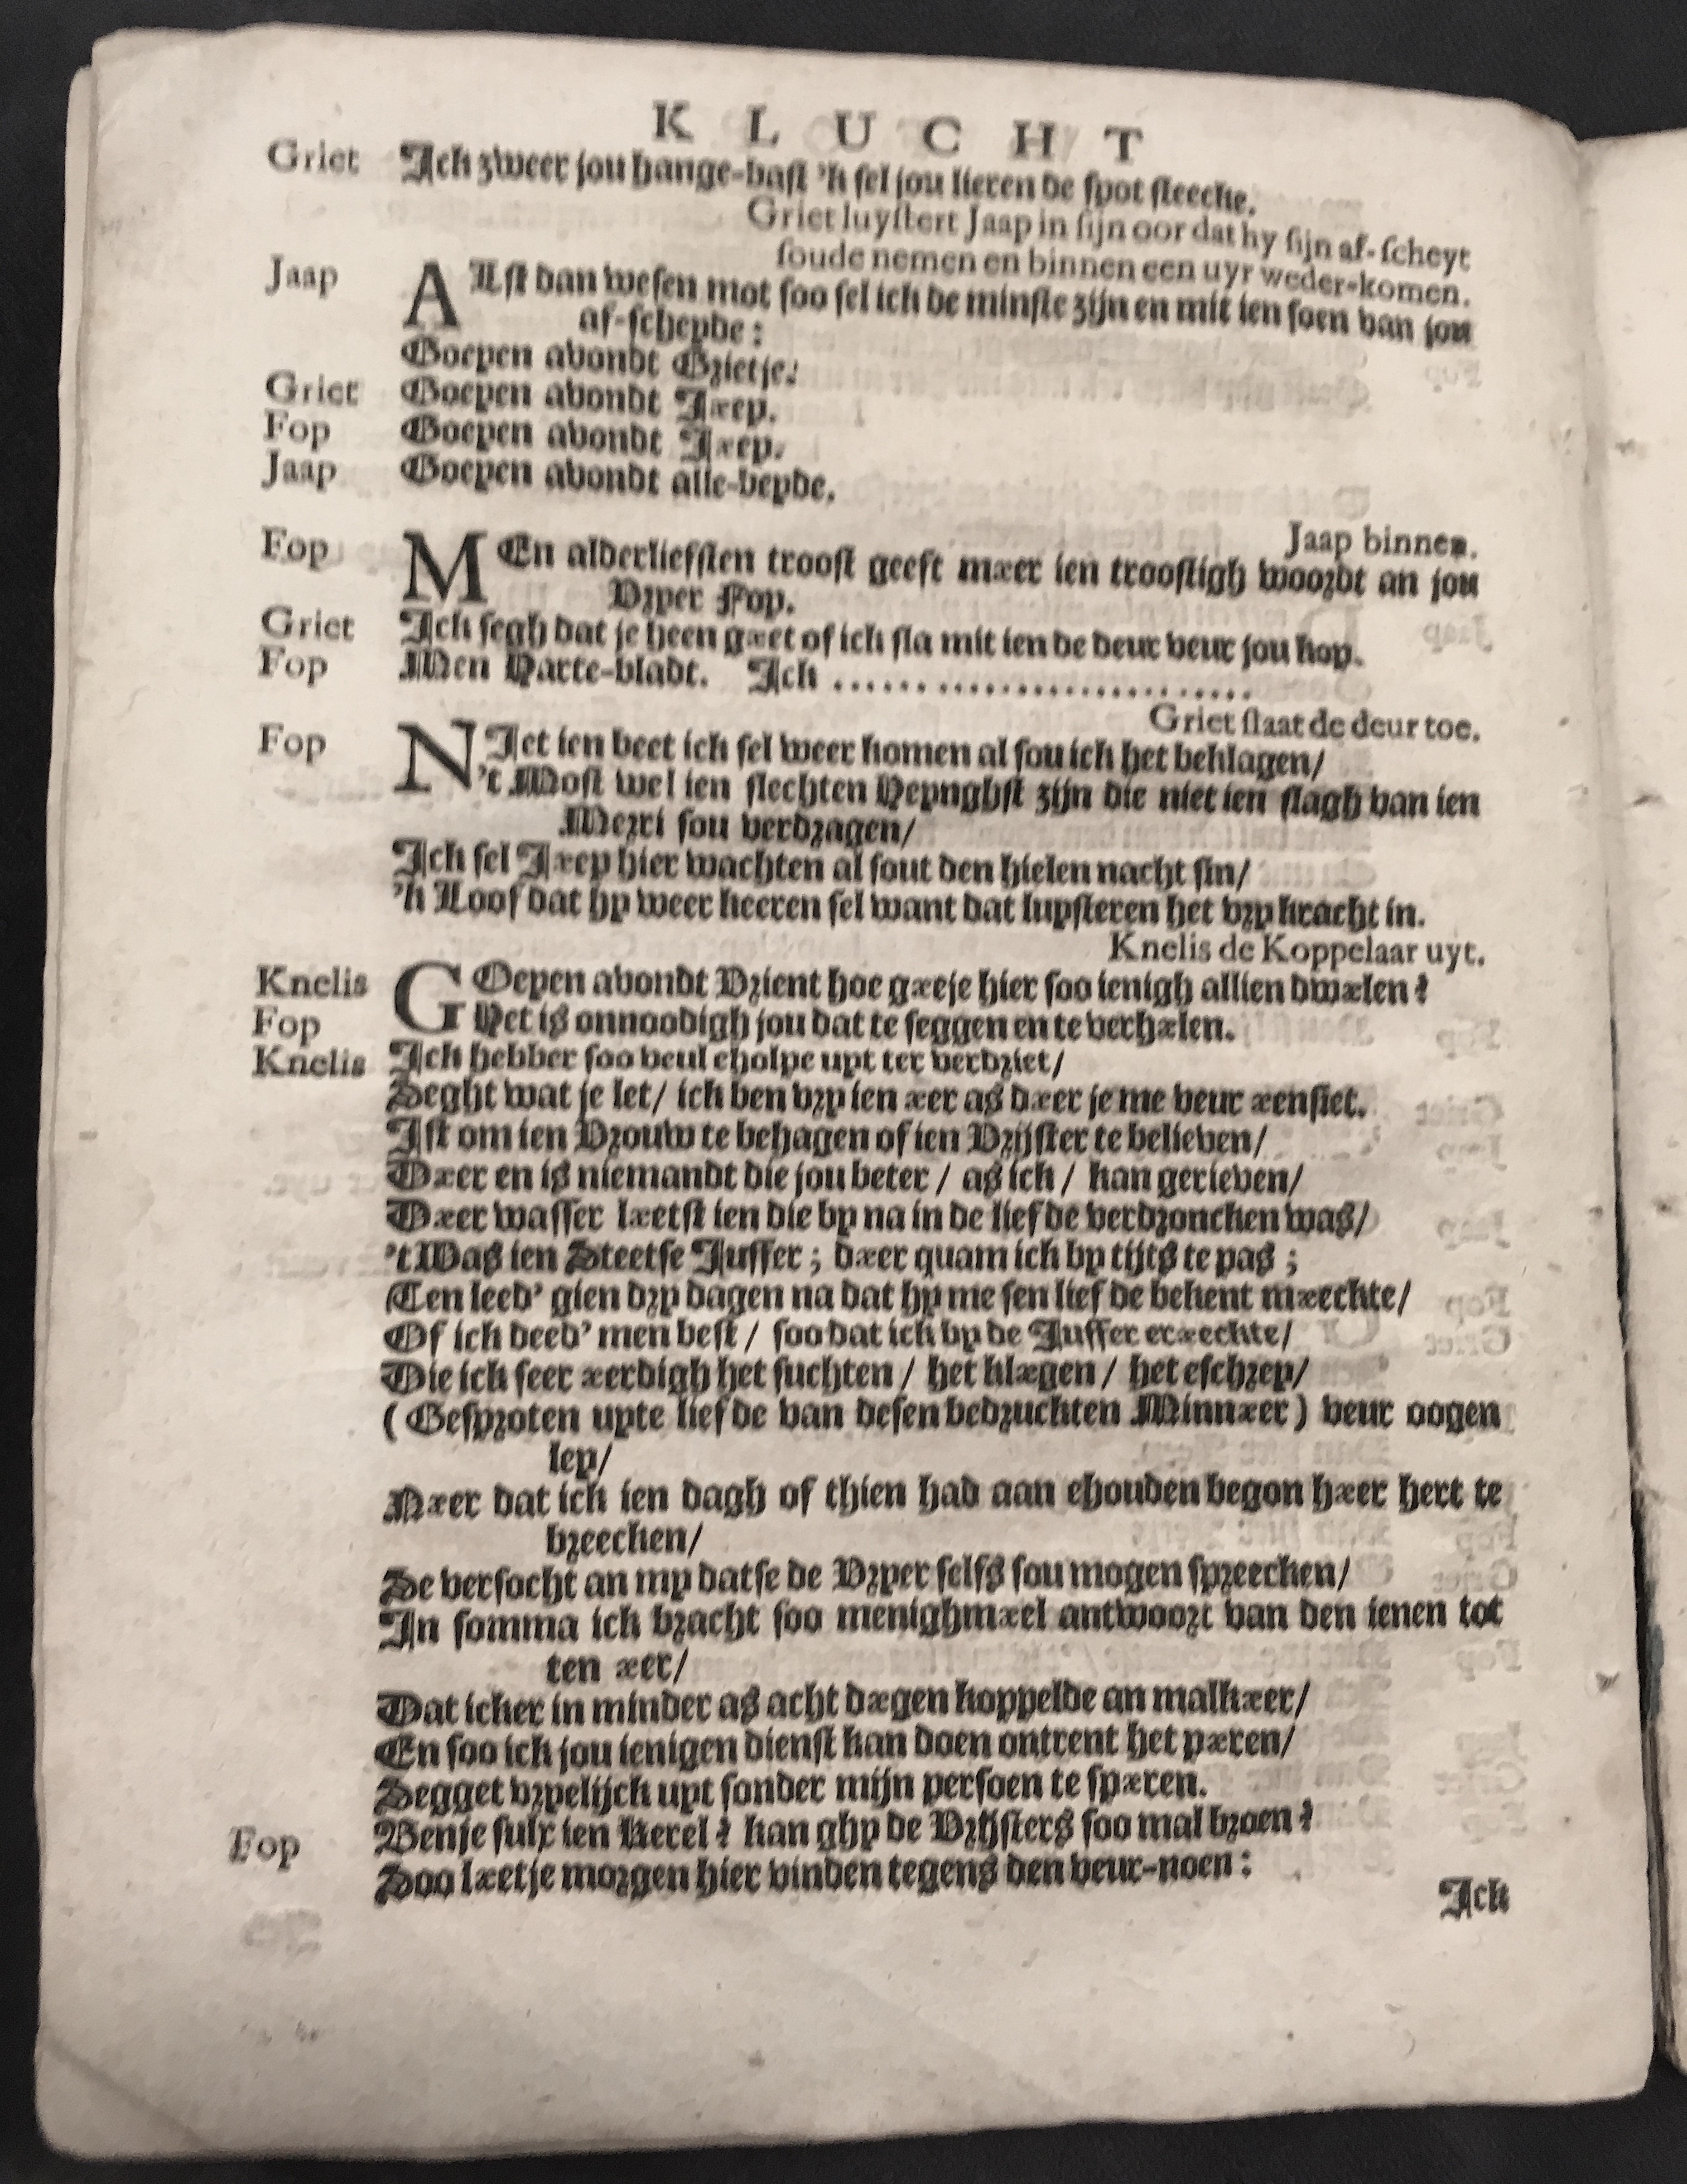 KLUCHT
Griet Ick zweer jou hange-bast 'k sel jou lieren de spot steecke.
Griet luystert Jaap in sijn oor dat hy sijn af-scheyt
soude nemen en binnen een uyr weder-komen.
Jaap ALst dan wesen mot soo sel ick de minste zijn en mit ien soen van jou
af-scheyde:
Goeyen avondt Grietje.
Griet Goeyen avondt Jæep.
Fop Goeyen avondt Jæep.
Jaap Goeyen avondt alle-beyde.
Jaap binnen.
Fop MEn alderliefsten troost geeft mæer ien troostigh woordt an jou
Vryer Fop.
Griet Ick segh dat je heen gæet of ick sla mit ien de deur veur jou kop.
Fop Men Harte-bladt. Ick ............................
Griet slaat de deur toe.
Fop NIet ien beet ick sel weer komen al sou ick het beklagen/
't Most wel ien slechten Heynghst zijn die niet ien slagh van ien
Merri sou verdragen/
Ick sel Jæep hier wachten al sout den hielen nacht sin/
'k Loof dat hy weer keeren sel want dat luysteren het vry kracht in.
Knelis de Koppelaar uyt.
Knelis GOeyen avondt Vrient hoe gæeje hier soo ienigh allien dwælen?
Fop Het is onnoodigh jou dat te seggen en te verhælen.
Knelis Ick hebber soo veul eholpe uyt ter verdriet/
Seght wat je let/ ick ben vry ien æer as dæer je me veur æensiet.
Ist om ien Vrouw te behagen of ien Vrijster te believen/
Dæer en is niemandt die jou beter / as ick / kan gerieven/
Dæer wasser læetst ien die by na in de liefde verdroncken was/
't Was ien Steetse Juffer ; dæer quam ick by tijts te pas ;
Ten leed' gien dry dagen na dat hy me sen liefde bekent mæeckte/
Of ick deed' men best / soo dat ick by de Juffer eræeckte/
Die ick seer æerdigh het suchten / het klægen / het eschrey/
(Gesproten uyte liefde van desen bedruckten Minnæer) veur oogen
ley/
Næer dat ick ien dagh of thien had aan ehouden begon hæer hert te
breecken/
Se versocht an my datse de Vryer selfs sou mogen spreecken/
In somma ick bracht soo menighmæel antwoort van den ienen tot
ten æer/
Dat icker in minder as acht dægen koppelde an malkæer/
En soo ick jou ienigen dienst kan doen ontrent het pæren/
Segget vryelijck uyt sonder mijn persoen te spæren.
Fop Benje sulx ien Kerel? kan ghy de Vrijsters soo mal broen?
Soo læetje morgen hier vinden tegens den veur-noen:
Ick